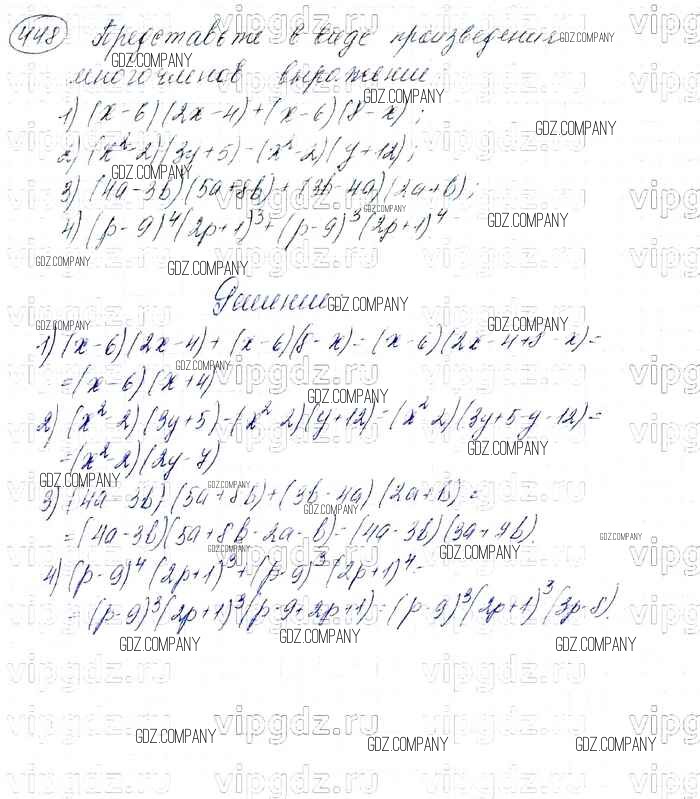 448 Представьте в виде произведения
многочленов выражение
1) (x-6)(2x-4)+(x-6)(8-x);
2) (x²-2)(3y+5)-(x²-2)(y+12);
3) (4a-3b)(5a+8b)+(3b-4a)(2a+b);
4) (p-9)⁴(2p+1)³+(p-9)³(2p+1)⁴
Решение
1) (x-6)(2x-4)+(x-6)(8-x)=(x-6)(2x-4+8-x)=
=(x-6)(x+4)
2) (x²-2)(3y+5)-(x²-2)(y+12)=(x²-2)(3y+5-y-12)=
=(x²-2)(2y-7)
3) (4a-3b)(5a+8b)+(3b-4a)(2a+b)=
=(4a-3b)(5a+8b-2a-b)=(4a-3b)(3a+7b).
4) (p-9)⁴(2p+1)³+(p-9)³(2p+1)⁴=
=(p-9)³(2p+1)³(p-9+2p+1)=(p-9)³(2p+1)³(3p-8).
GDZ.COMPANY
vipgdz.ru